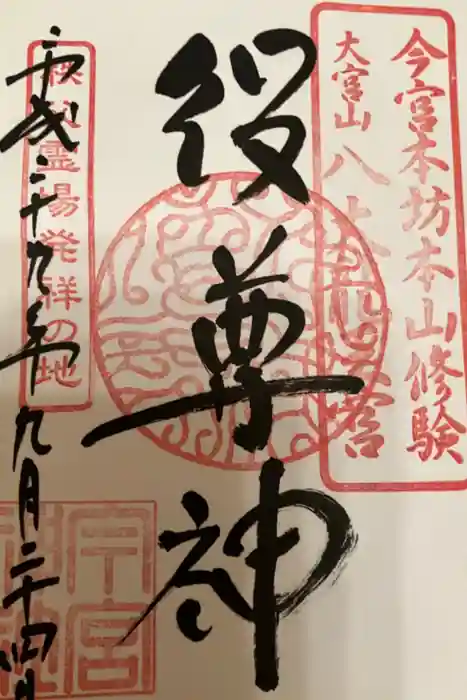 今宮本坊本山修験
大宮山
役尊神
秩父霊場発祥の地
平成二十九年九月二十四日
今宮